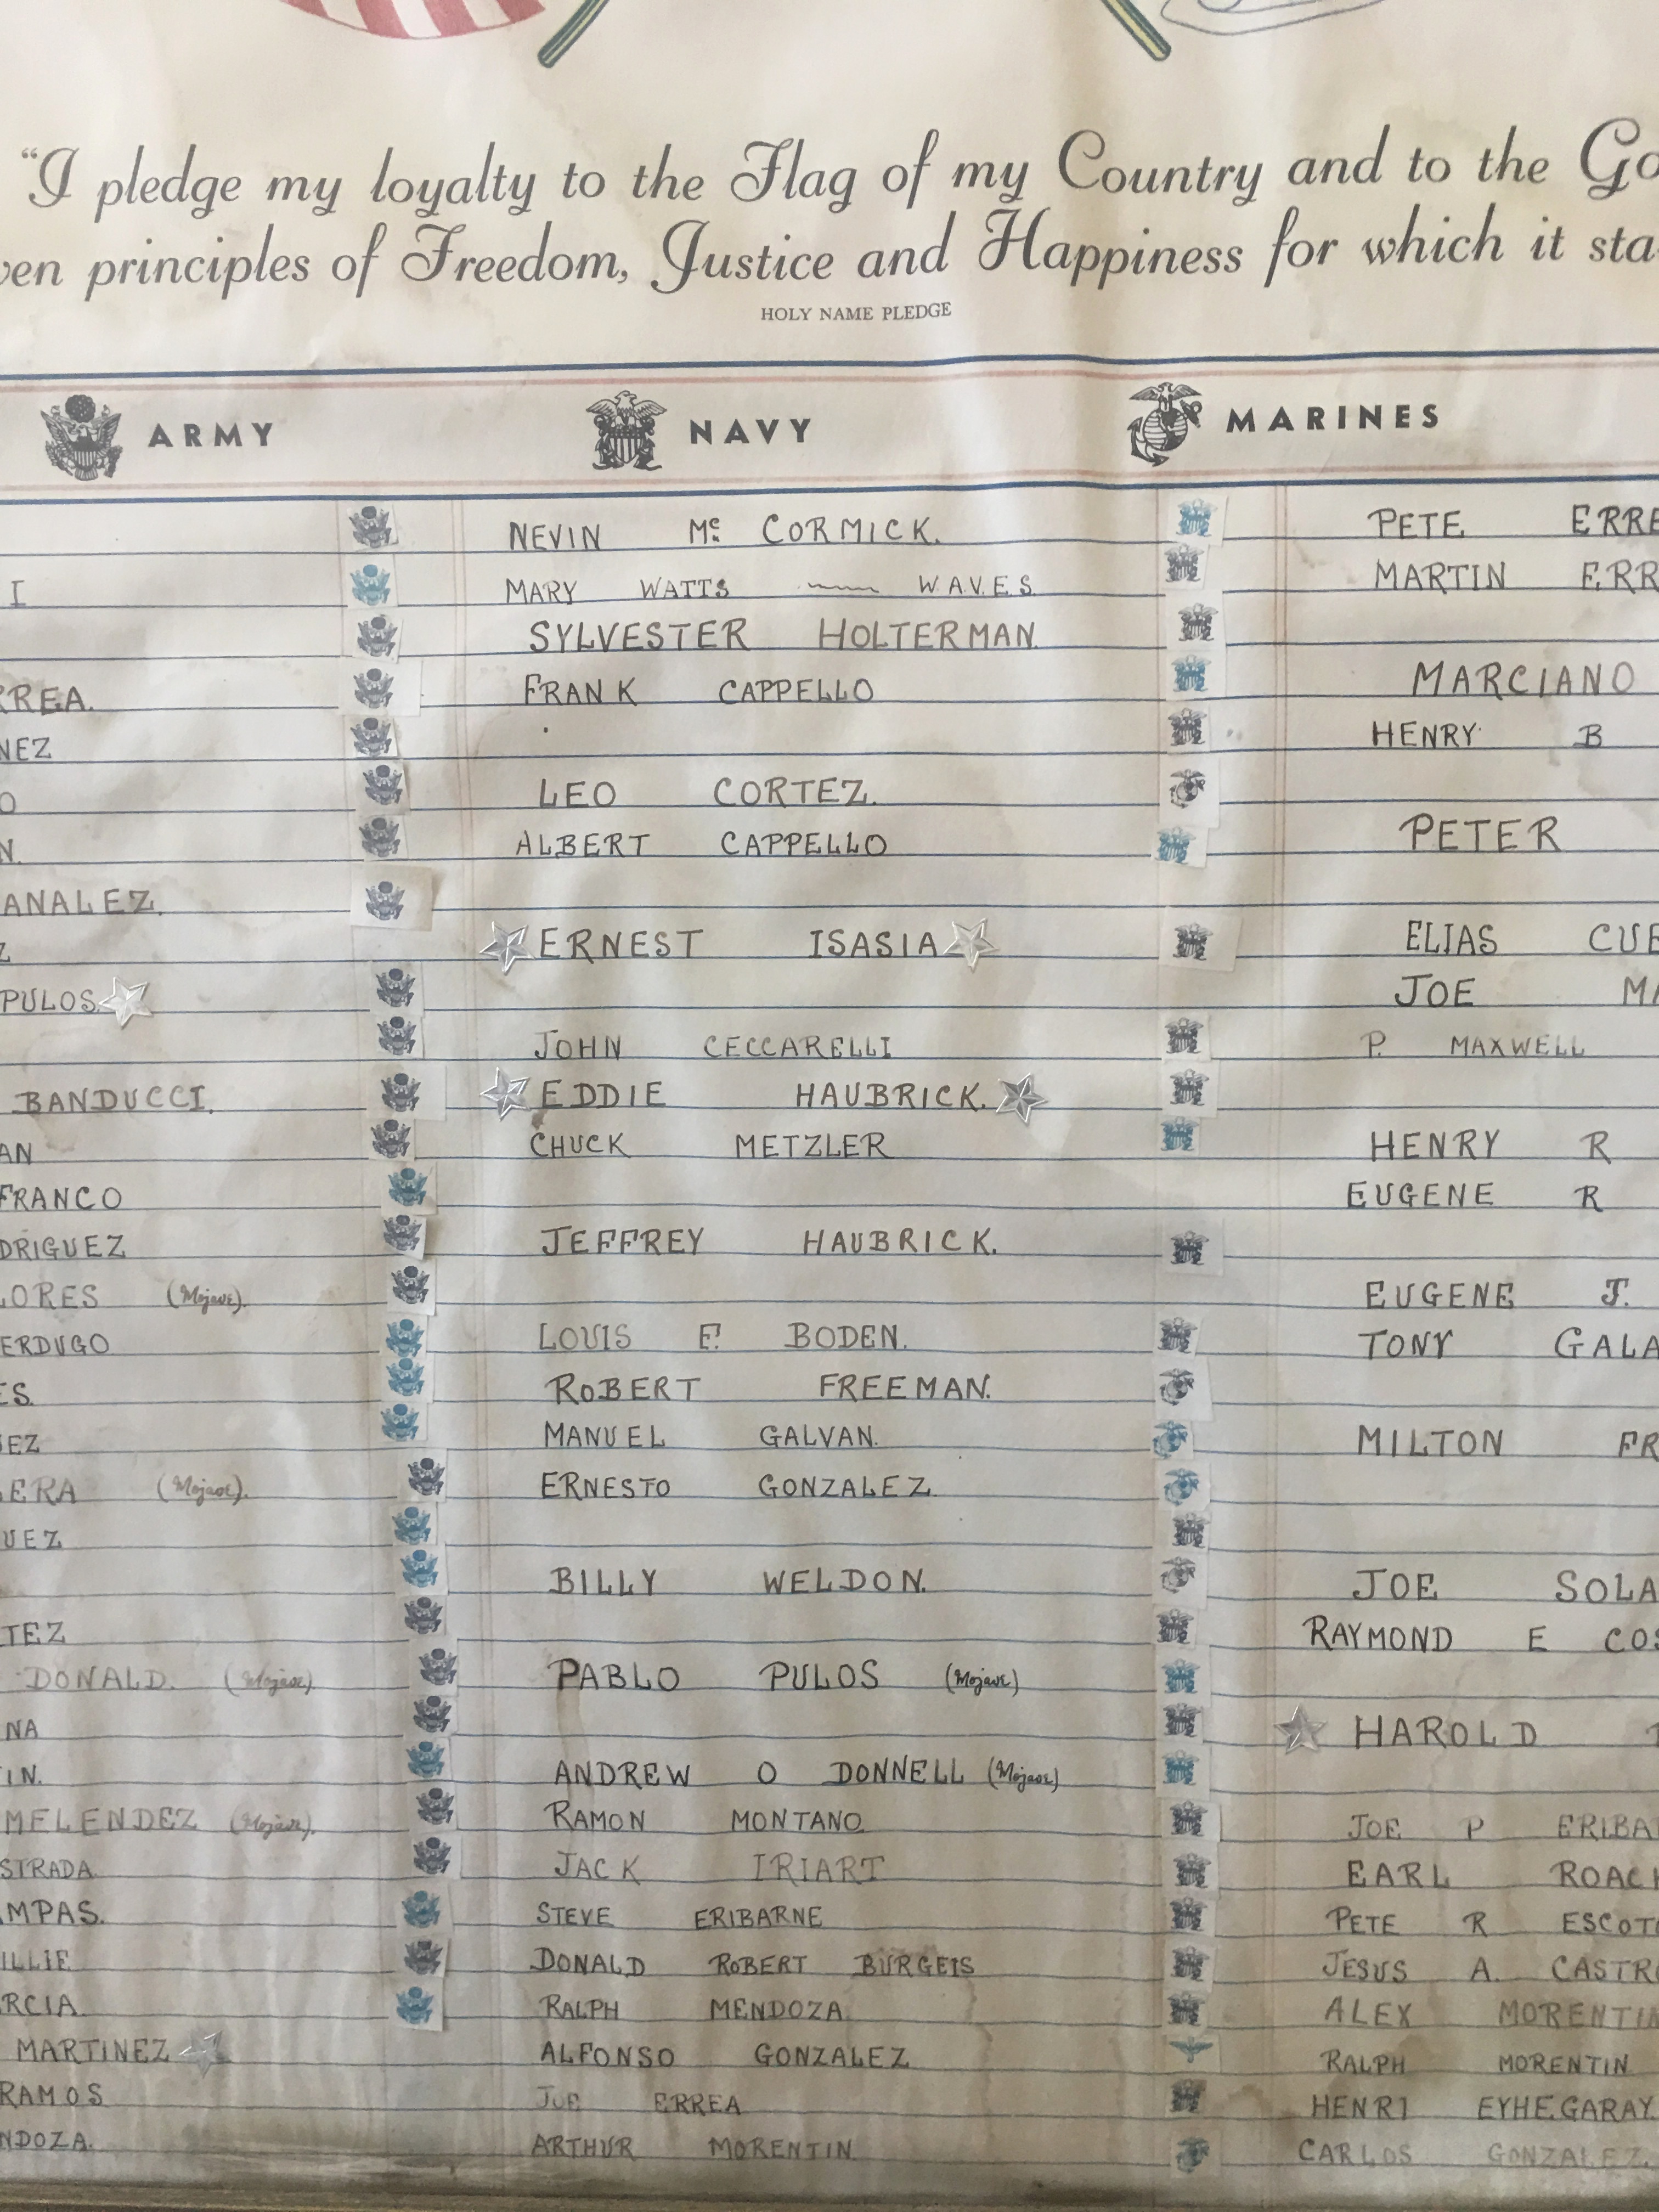 "I pledge my loyalty to the Flag of my Country and to the Go
ven principles of Freedom, Justice and Happiness for which it sta
HOLY NAME PLEDGE
ARMY NAVY MARINES
NEVIN Mc CORMICK. PETE ERRE
I MARY WATTS W.A.V.E.S. MARTIN ERR
SYLVESTER HOLTERMAN.
RREA. FRANK CAPPELLO MARCIANO
NEZ HENRY B
O LEO CORTEZ.
N. ALBERT CAPPELLO PETER
ANALEZ.
Z ERNEST ISASIA ELIAS CUE
PULOS. JOE MA
JOHN CECCARELLI P. MAXWELL
BANDUCCI. EDDIE HAUBRICK.
AN CHUCK METZLER HENRY R
FRANCO EUGENE R
DRIGUEZ JEFFREY HAUBRICK.
LORES (Mojave). EUGENE J.
ERDUGO LOUIS F. BODEN. TONY GALA
ES. ROBERT FREEMAN.
UEZ MANUEL GALVAN. MILTON FR
ERA (Mojave). ERNESTO GONZALEZ.
UEZ
BILLY WELDON. JOE SOLA
TEZ RAYMOND E COS
DONALD. (Mojave) PABLO PULOS (Mojave)
NA HAROLD
IN. ANDREW O DONNELL (Mojave)
MELENDEZ (Mojave). RAMON MONTANO JOE P ERIBA
STRADA JACK IRIART EARL ROACH
AMPAS. STEVE ERIBARNE PETE R ESCOT
ILLIE DONALD ROBERT BURGEIS JESUS A. CASTRO
RCIA. RALPH MENDOZA ALEX MORENTIN
MARTINEZ ALFONSO GONZALEZ RALPH MORENTIN
RAMOS JOE ERREA HENRI EYHEGARAY.
NDOZA. ARTHUR MORENTIN CARLOS GONZALEZ.